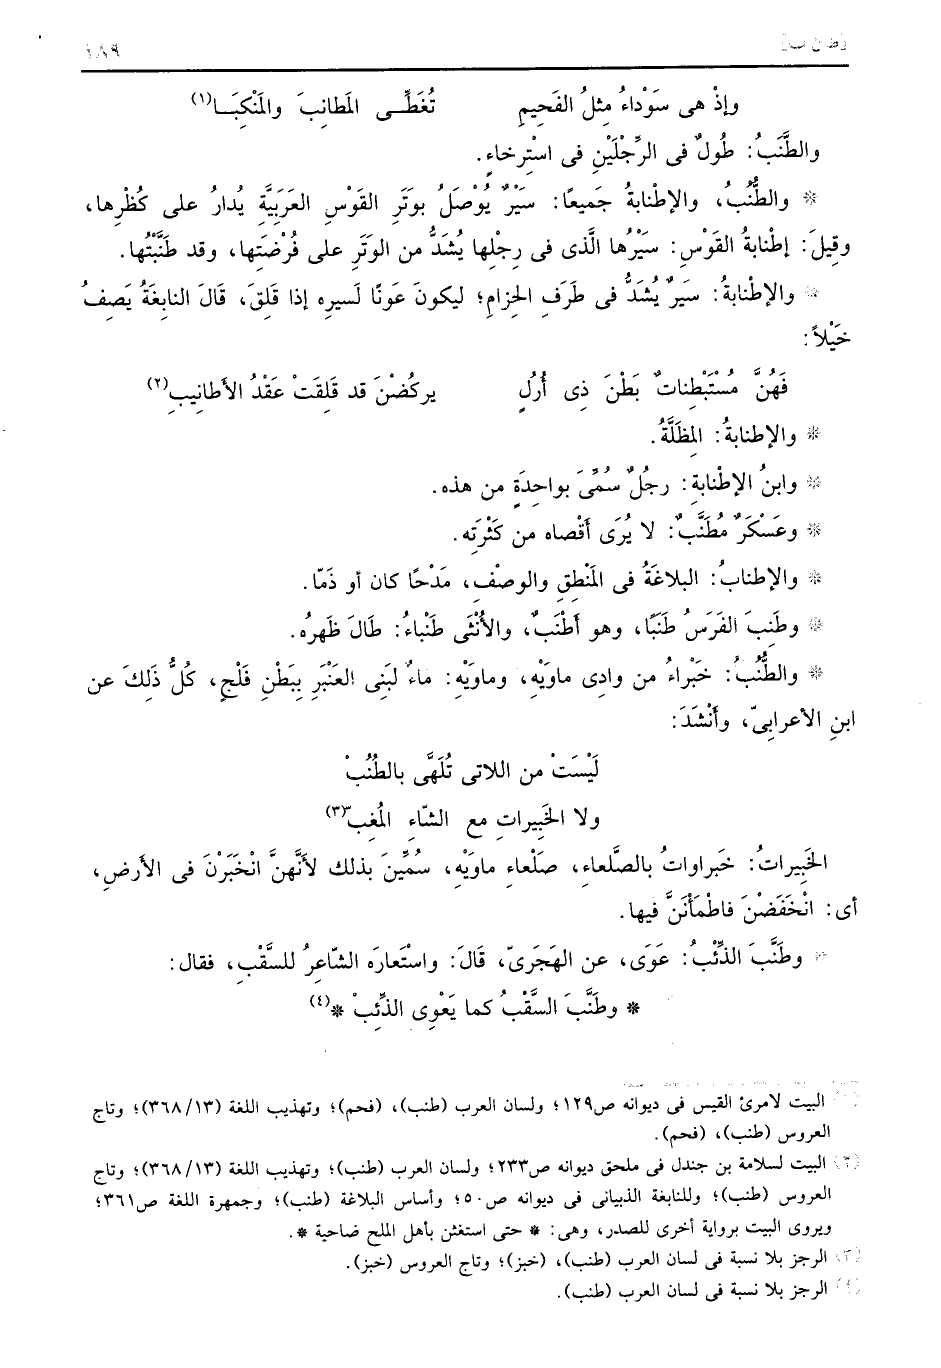 [ط ن ب] ١٨٩
وإذْ هى سَوْداءُ مِثلُ الفَحِيمِ تُغَطِّـى المَطانِبَ والمَنْكِبَـا(١)
والطَّنَبُ: طُولٌ فى الرِّجْلَيْنِ فى استِرخاءٍ.
* والطُّنُبُ، والإطْنابةُ جَميعًا: سَيْرٌ يُوْصَلُ بوَتَرِ القَوْسِ العَرَبِيَّةِ يُدارُ على كُظْرِها،
وقِيلَ: إطْنابةُ القَوْسِ: سَيْرُها الَّذى فى رِجْلِها يُشَدُّ من الوَتَرِ على فُرْضَتِها، وقد طَنَّبْتُها.
* والإطنابةُ: سَيرٌ يُشَدُّ فى طَرَفِ الحِزامِ؛ ليكونَ عَونًا لسيرِه إذا قَلِقَ، قَالَ النابِغَةُ يَصِفُ
خَيْلاً:
فَهُنَّ مُسْتَبْطِناتٌ بَطْنَ ذِى أُرُلٍ يركُضْنَ قد قَلِقَتْ عَقْدُ الأَطانِيبِ(٢)
* والإطنابةُ: المِظَلَّةُ.
* وابنُ الإطْنابةِ: رجُلٌ سُمِّىَ بواحِدَةٍ من هذه.
* وعَسْكَرٌ مُطَنَّبٌ: لا يُرَى أَقْصاه من كَثْرَتِه.
* والإطنابُ: البلاغَةُ فى المَنْطِقِ والوصْفِ، مَدْحًا كان أو ذَمّا.
* وطَنِبَ الفَرَسُ طَنَبًا، وهو أطْنَبُ، والأُنْثَى طَنْباءُ: طَالَ ظَهرُه.
* والطُّنُبُ: خَبْراءُ من وادِى ماوَيْهِ، وماوَيْهِ: ماءٌ لبَنِى العَنْبَرِ بِبَطْنِ فَلْجٍ، كُلُّ ذَلِكَ عن
ابنِ الأعرابىّ، وأنْشَدَ:
لَيْسَتْ من اللاتى تُلَهَّى بالطُنُبْ
ولا الخَبِيراتِ مع الشّاءِ المُغِبّ(٣)
الخَبِيراتُ: خَبراواتُ بالصَّلعاءِ، صَلْعاءِ ماوَيْهِ، سُمِّينَ بذلك لأَنَّهنَّ انْخَبَرْنَ فى الأرضِ،
أى: انْخَفَضْنَ فاطْمَأْنَنَّ فيها.
* وطَنَّبَ الذِّئْبُ: عَوَى، عن الهَجَرِىّ، قَالَ: واسْتَعارَه الشّاعِرُ للسَّقْبِ، فقال:
* وطَنَّبَ السَّقْبُ كما يَعْوِى الذِّئِبْ *(٤)
(١) البيت لامرئ القيس فى ديوانه ص١٢٩؛ ولسان العرب (طنب)، (فحم)؛ وتهذيب اللغة (٣٦٨/١٣)؛ وتاج
العروس (طنب)، (فحم).
(٢) البيت لسلامة بن جندل فى ملحق ديوانه ص٢٣٣؛ ولسان العرب (طنب)؛ وتهذيب اللغة (٣٦٨/١٣)؛ وتاج
العروس (طنب)؛ وللنابغة الذبيانى فى ديوانه ص٥٠؛ وأساس البلاغة (طنب)؛ وجمهرة اللغة ص٣٦١؛
ويروى البيت برواية أخرى للصدر، وهى: * حتى استغثن بأهل الملح ضاحية *.
(٣) الرجز بلا نسبة فى لسان العرب (طنب)، (خبز)؛ وتاج العروس (خبز).
(٤) الرجز بلا نسبة فى لسان العرب (طنب).